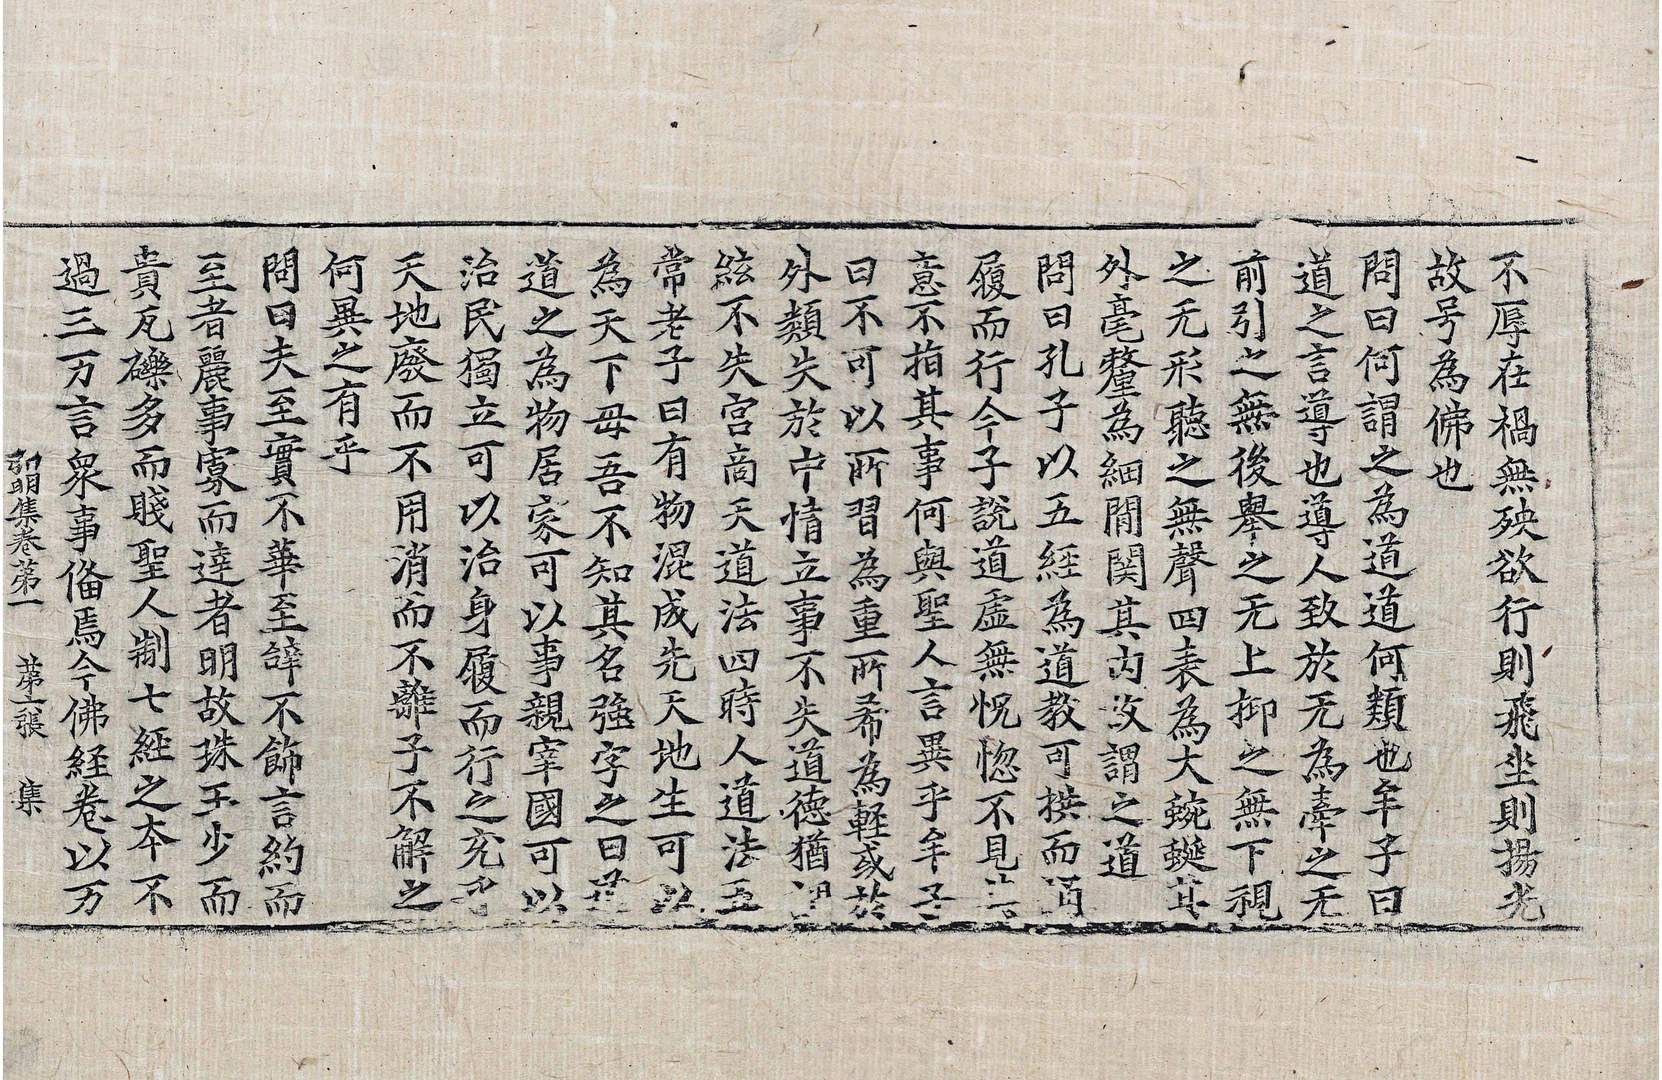 不辱在禍無殃欲行則飛坐則揚光
故号為佛也
問曰何謂之為道道何類也牟子曰
道之言導也導人致於无為牽之无
前引之無後舉之无上抑之無下視
之无形聽之無聲四表為大蜿蜒其
外毫釐為細閒関其内故謂之道
問曰孔子以五經為道教可拱而誦
履而行今子說道虛無怳惚不見其
意不指其事何與聖人言異乎牟子
曰不可以所習為重所希為軽或於
外類失於中情立事不失道德猶調
絃不失宮商天道法四時人道法五
常老子曰有物混成先天地生可以
為天下母吾不知其名強字之曰道
道之為物居家可以事親宰國可以
治民獨立可以治身履而行之充乎
天地廢而不用消而不離子不解之
何異之有乎
問曰夫至實不華至辭不飾言約而
至者麗事寡而達者明故珠玉少而
貴瓦礫多而賤聖人制七經之本不
過三万言衆事俻焉今佛経卷以万
弘明集卷第一 第二張 集